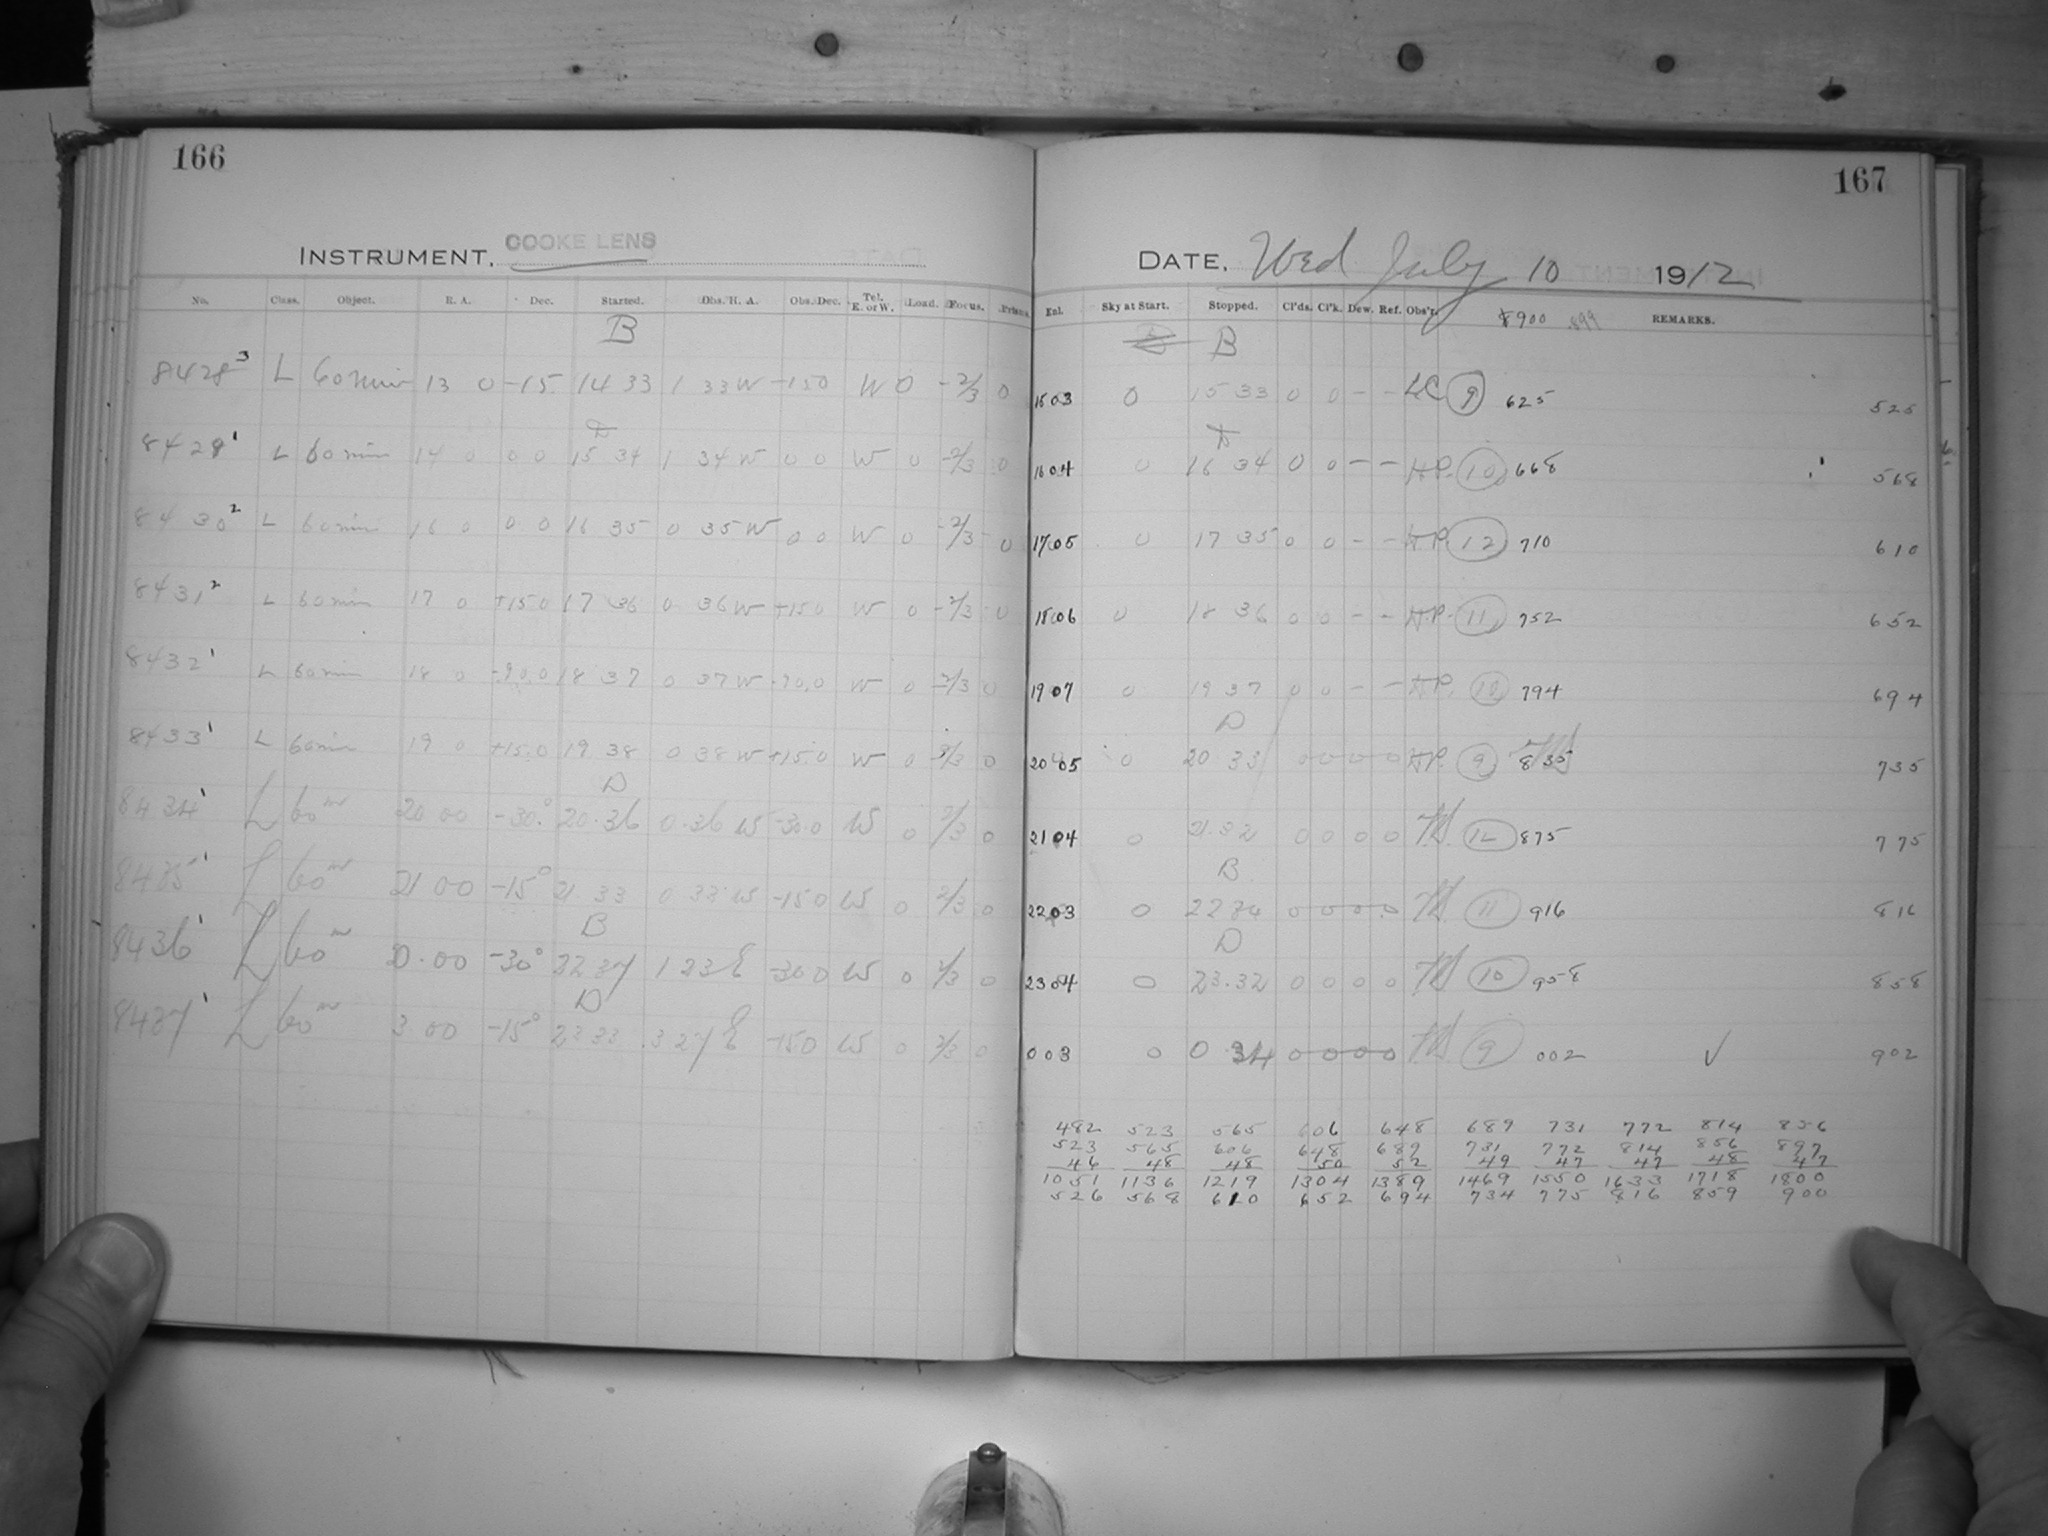 166
INSTRUMENT. COOKE LENS
No. Class. Object. R. A. Dec. Started. Obs. H. A. Obs. Dec. Tel. E. or W. Load. Focus. Prism.
B
8428³ L 60 min 13 0 -15 14 33 1 33 W -15 0 W 0 -2/3 0
D
8429¹ L 60 min 14 0 0 0 15 34 1 34 W 0 0 W 0 -2/3 0
8430² L 60 min 16 0 0 0 16 35 0 35 W 0 0 W 0 -2/3 0
8431² L 60 min 17 0 +15 0 17 36 0 36 W +15 0 W 0 -2/3 0
8432¹ L 60 min 18 0 18 37 0 37 W W 0 -2/3 0
8433¹ L 60 min 19 0 +15.0 19 38 0 38 W +15.0 W 0 0
D
8434¹ L 60ᵐ 20 00 -30.° 20.36 0.36 W -30.0 W 0 2/3 0
8435¹ L 60ᵐ 21 00 -15° 21 33 0 33 W -15 0 W 0 2/3 0
B
8436¹ L 60ᵐ -30° 22 37 1 23 E -30 0 W 0 2/3 0
D
8437¹ L 60ᵐ 3 00 -15° 23 33 3 27 E -15 0 W 0 2/3 0
167
DATE, Wed July 10 1912
Enl. Sky at Start. Stopped. Cl'ds. Cl'k. Dew. Ref. Obs'r. 8900 899 REMARKS.
B
15 03 0 15 33 0 0 - - LC 9 625 525
D
16 04 0 16 34 0 0 - - H.P. 10 668 568
17 05 0 17 35 0 0 - - H.P. 12 710 610
18 06 0 18 36 0 0 - - H.P. 11 752 652
19 07 0 19 37 0 0 - - H.P. 794 694
D
20 05 0 20 33 0 0 0 0 H.P. 9 835 735
21 04 0 21.32 0 0 0 0 12 875 775
B
22 03 0 22 34 0 0 0 0 11 916 816
D
23 04 0 23.32 0 0 0 0 10 958 858
0 03 0 0 34 0 0 0 0 9 002 ✓ 902
482 523 565 606 648 689 731 772 814 856
523 565 606 648 689 731 772 814 856 897
46 48 48 50 52 49 47 47 48 47
1051 1136 1219 1304 1389 1469 1550 1633 1718 1800
526 568 610 652 694 734 775 816 859 900